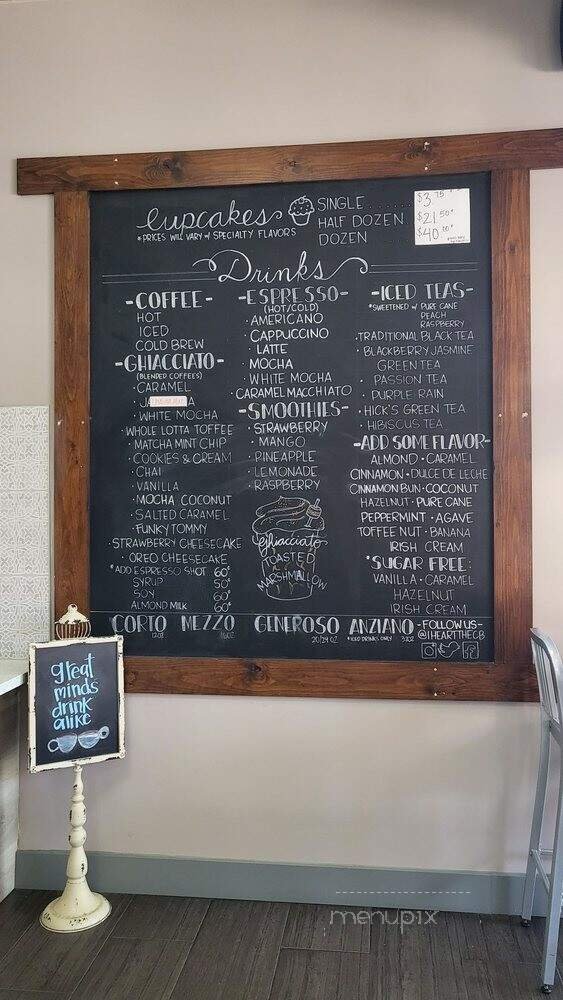 Cupcakes
*PRICES WILL VARY W/ SPECIALTY FLAVORS
SINGLE ........ $3.75*
HALF DOZEN $21.50*
DOZEN $40.00*
Drinks
-COFFEE-
HOT
ICED
COLD BREW
-GHIACCIATO-
(BLENDED COFFEES)
·CARAMEL
·WHITE MOCHA
·WHOLE LOTTA TOFFEE
·MATCHA MINT CHIP
·COOKIES & CREAM
·CHAI
·VANILLA
·MOCHA COCONUT
·SALTED CARAMEL
·FUNKY TOMMY
·STRAWBERRY CHEESECAKE
·OREO CHEESECAKE
*ADD ESPRESSO SHOT 60¢
SYRUP 50¢
SOY 60¢
ALMOND MILK 60¢
-ESPRESSO-
(HOT/COLD)
·AMERICANO
·CAPPUCCINO
·LATTE
·MOCHA
·WHITE MOCHA
CARAMEL MACCHIATO
-SMOOTHIES-
·STRAWBERRY
·MANGO
·PINEAPPLE
·LEMONADE
·RASPBERRY
Ghiacciato
TOASTED
MARSHMALLOW
-ICED TEAS-
*SWEETENED W/ PURE CANE
PEACH
RASPBERRY
·TRADITIONAL BLACK TEA
·BLACKBERRY JASMINE
GREEN TEA
·PASSION TEA
·PURPLE RAIN
·HICK'S GREEN TEA
·HIBISCUS TEA
-ADD SOME FLAVOR-
ALMOND·CARAMEL
CINNAMON·DULCE DE LECHE
CINNAMON BUN·COCONUT
HAZELNUT·PURE CANE
PEPPERMINT·AGAVE
TOFFEE NUT·BANANA
IRISH CREAM
*SUGAR FREE:
VANILLA·CARAMEL
HAZELNUT
IRISH CREAM
CORTO MEZZO GENEROSO ANZIANO
12OZ 16OZ 20/24 OZ *ICED DRINKS ONLY 32OZ
-FOLLOW US-
@IHEARTTHECB
great
minds
drink
alike
menupix